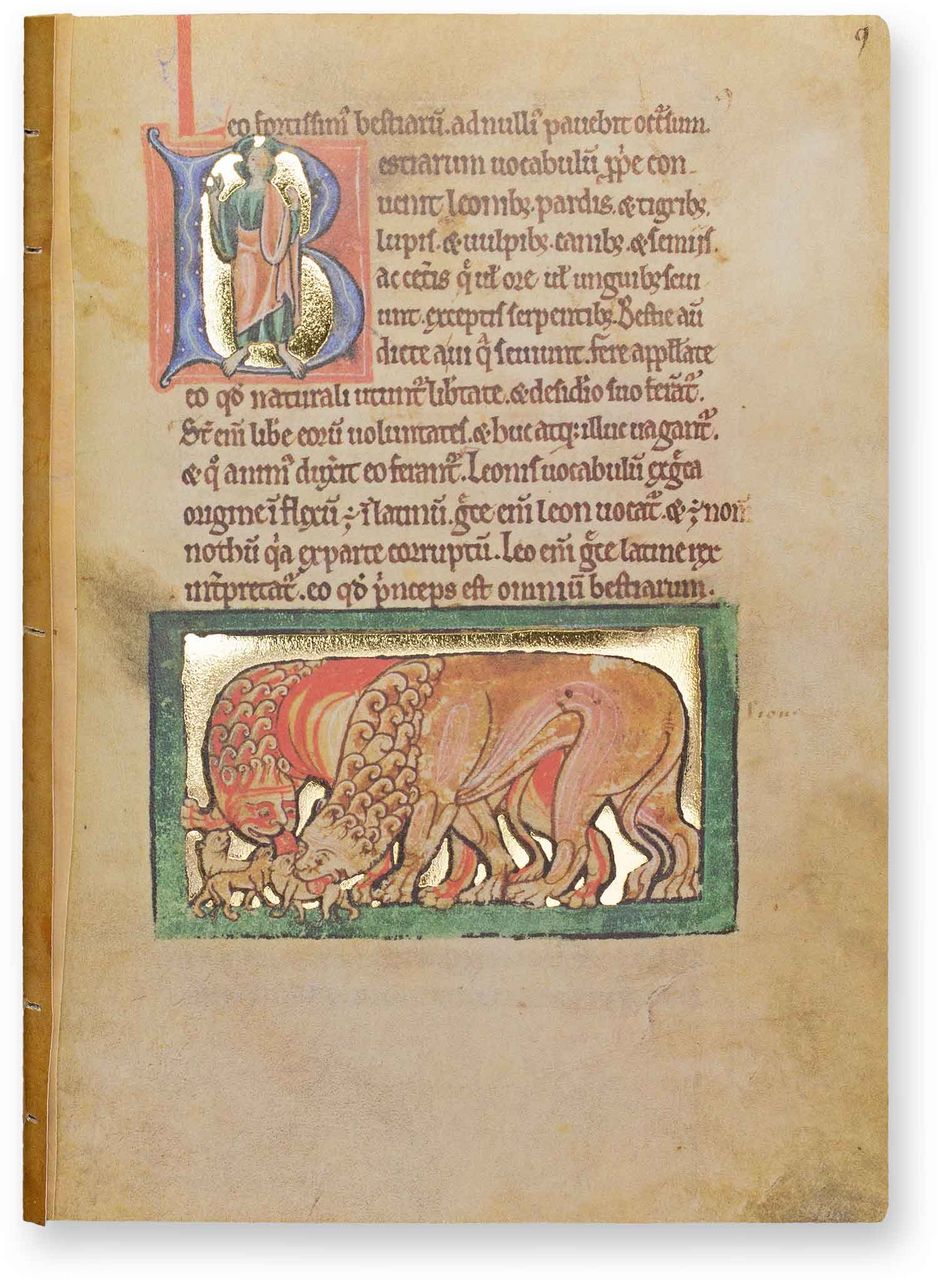 9
Leo fortissim' bestiarū. ad nulli' pauebit occ̄sum.
Bestiarum uocabulū ꝓpͥe con-
uenit leonibꝫ. pardis. & tigribꝫ.
lupis. & uulpibꝫ. canibꝫ. & semijs.
ac cet̄is q̄ uł ore uł unguibꝫ seui
unt. exceptis serpentibꝫ. Bestie aū
dicte a ui q̄ seuiunt. fere appłłate
eo qđ naturali utunt᷑ lib̄tate. & desid̄io suo ferāt᷑.
St̄ eni᷑ lib̄e eorū uoluntates. & huc atqꝫ illuc uagant᷑.
& qͦ anim' duxit̄ eo ferant᷑. Leonis uocabulū ex ḡca
origine īflexū ÷ ī latinū. ḡce eni᷑ leon uocat᷑. & ÷ nom̄
nothū qͥa ex parte corruptū. Leo eni᷑ ḡce latine rex
int̄pretat᷑. eo qđ pͥnceps est omniū bestiarum.